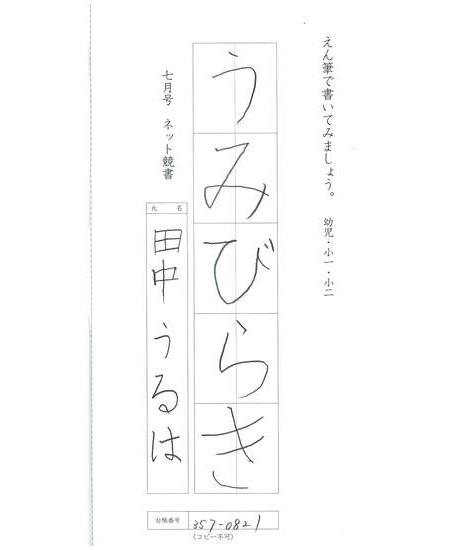 えん筆で書いてみましょう。 幼児・小一・小二
うみびらき
七月号 ネット競書
氏 名
田中うるは
台帳番号 357-0821
(コピー不可)